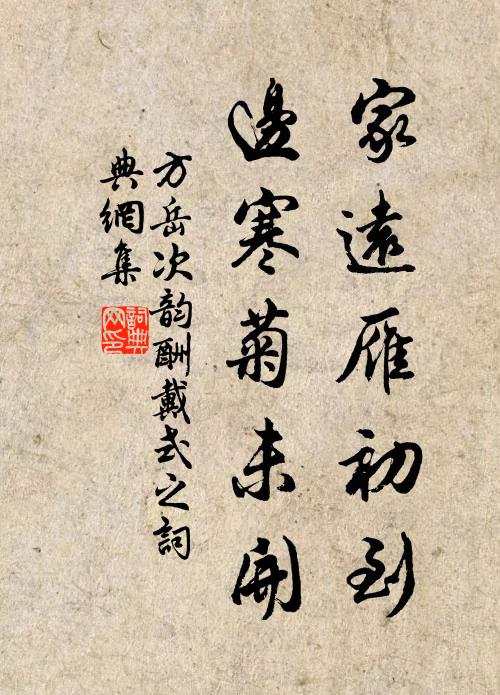 家遠雁初到
邊寒菊未開
方岳次韵酬戴式之詞
典網集
詞典
网印